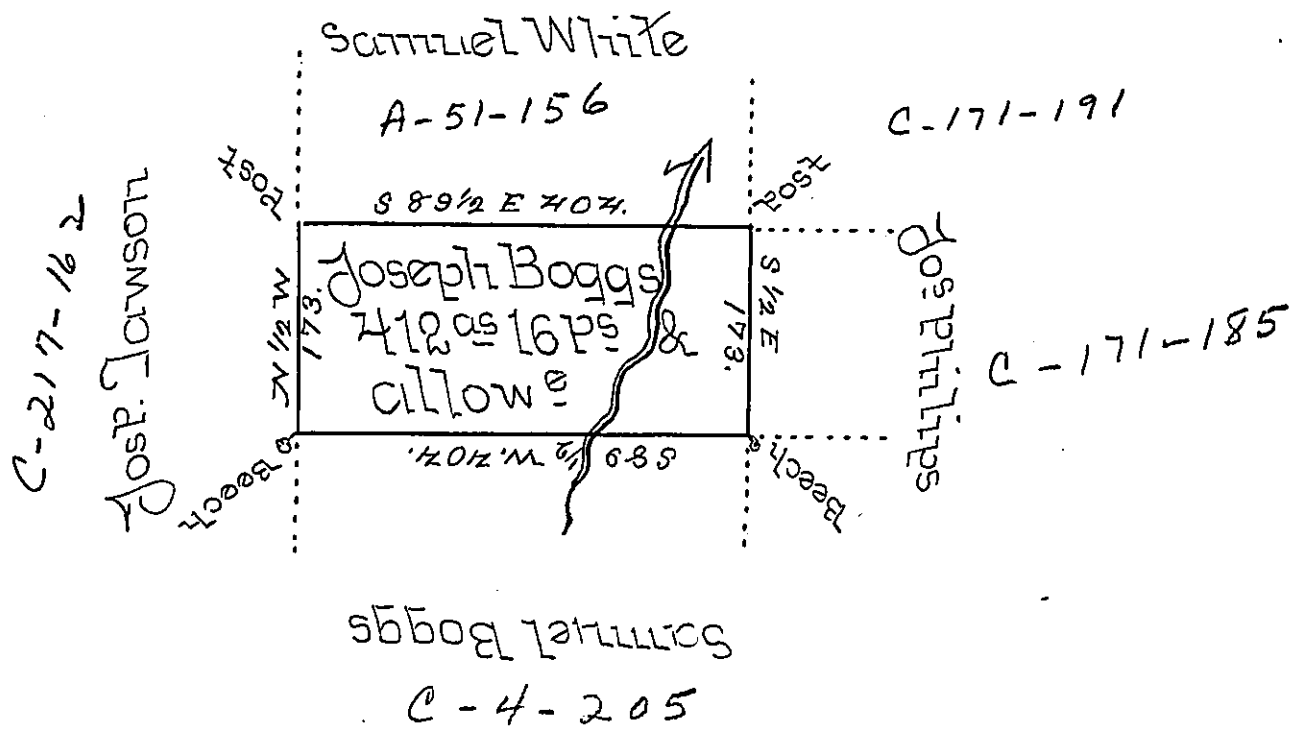 Samuel White
A-51-156
C-171-191
Post
Post
S 89½ E 404.
C-217-162
Josᵈ. Lawson
N ½ W
173.
Joseph Boggs
412 aˢ 16 Pˢ &
allowᵉ
S ½ E
173.
Joˢ Phillips
C-171-185
S 89½ W. 404.
Beech
Beech
Samuel Boggs
C-4-205